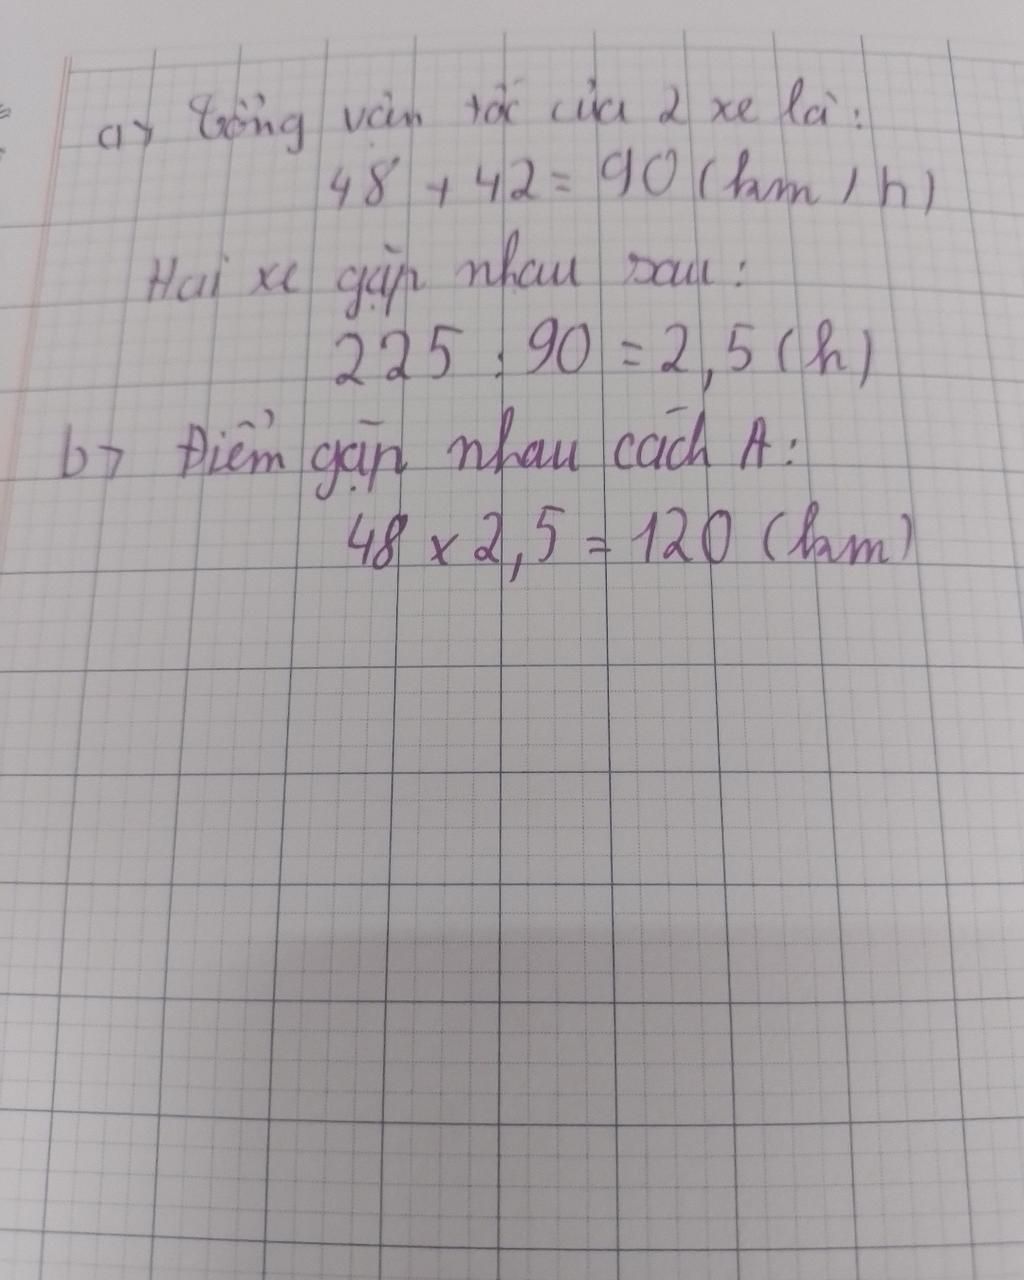 a> Tổng vận tốc của 2 xe là:
48 + 42 = 90 (km / h)
Hai xe gặp nhau sau:
225 : 90 = 2,5 (h)
b> Điểm gặp nhau cách A:
48 x 2,5 = 120 (km)